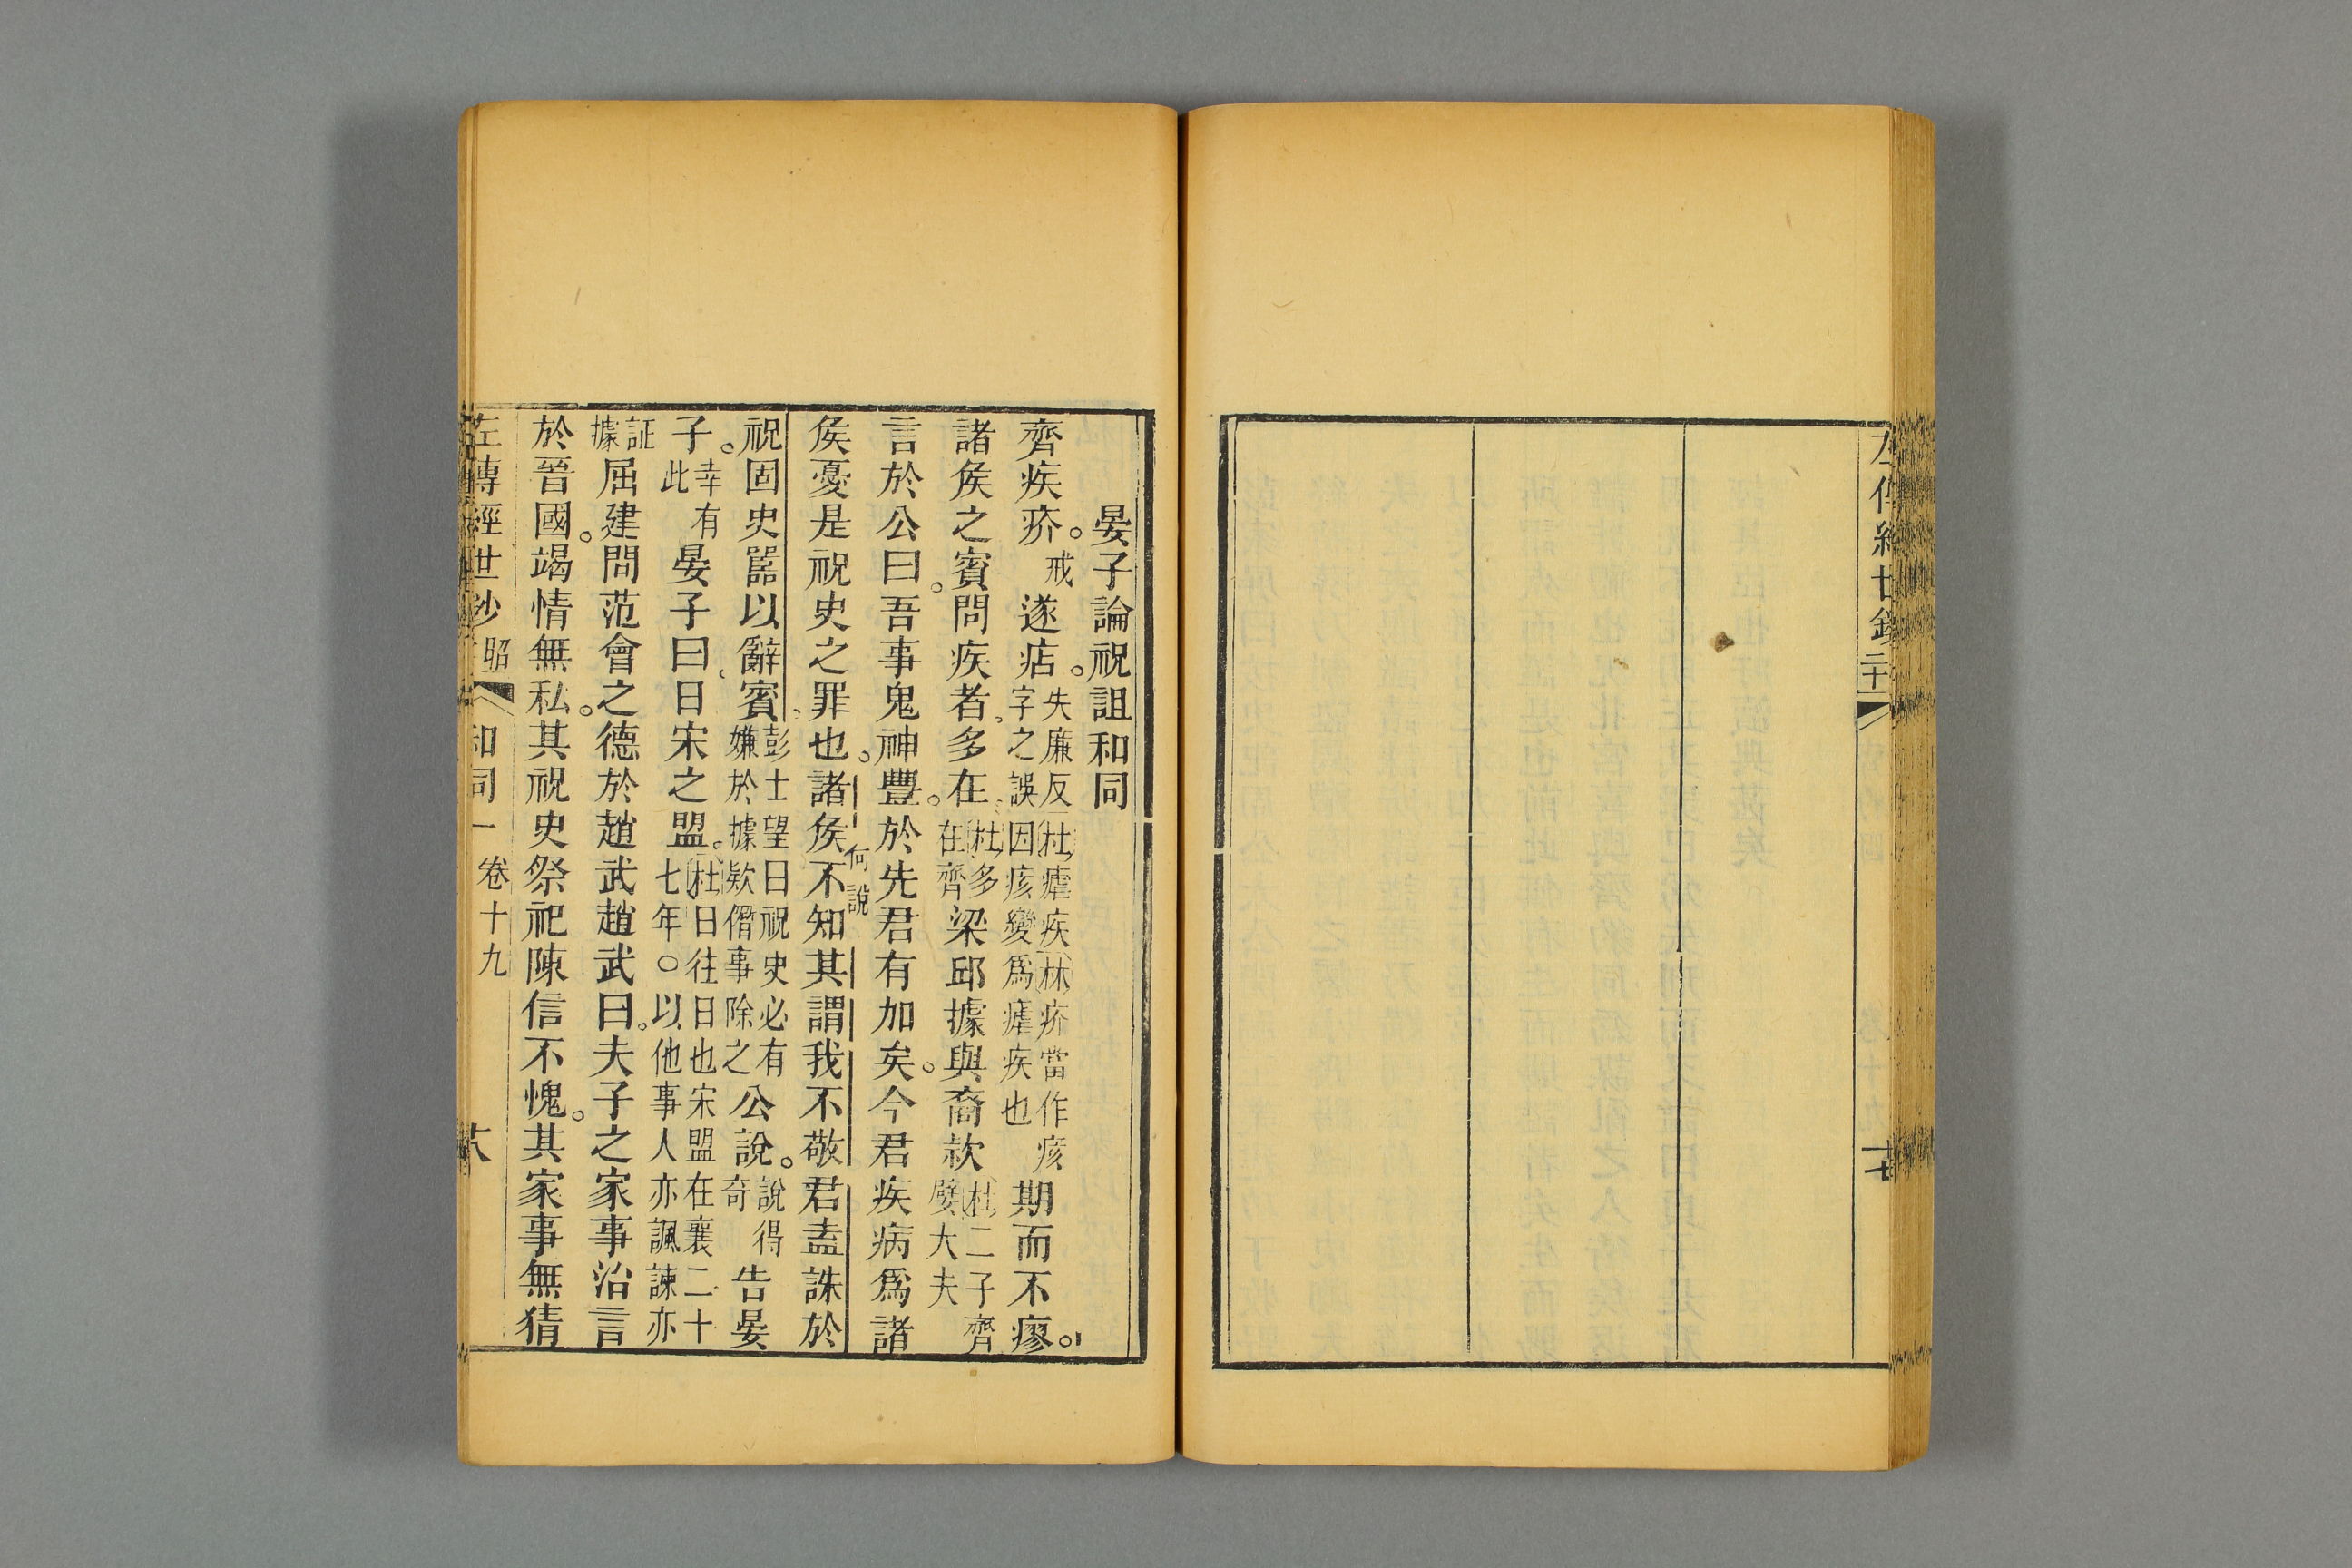 左傳經世鈔 二十 十七
晏子論祝詛和同
齊疾疥。戒遂痁。失廉反杜瘧疾林疥當作痎字之誤因痎變爲瘧疾也期而不瘳。
諸矦之賓問疾者多在。杜多在齊梁邱據與裔款杜二子齊嬖大夫
言於公曰。吾事鬼神豐。於先君有加矣。今君疾病爲諸
矦憂是祝史之罪也。諸矦不知其謂我不敬君盍誅於
何說
祝固史嚚以辭賓、彭士望曰祝史必有嫌於據款僭事除之公說。說得奇告晏
子。幸有此晏子曰、日宋之盟。杜日往日也宋盟在襄二十七年○以他事人亦諷諫亦
証據屈建問范會之德於趙武趙武曰。夫子之家事治言
於晉國。竭情無私。其祝史祭祀陳信不愧。其家事無猜
左傳經世鈔 昭 和同一 卷十九 十八